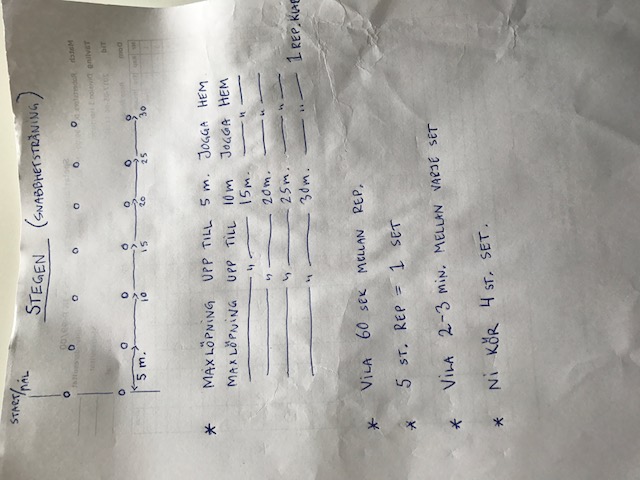 STEGEN (SNABBHETSTRÄNING)
START/MÅL
5 m. 10 15 20 25 30
* MAXLÖPNING UPP TILL 5 m. JOGGA HEM
MAXLÖPNING UPP TILL 10m JOGGA HEM
— " — 15m. — " —
— " — 20m. — " —
— " — 25m. — " —
— " — 30m. — " — 1 REP. KLAR
* VILA 60 SEK MELLAN REP.
* 5 ST. REP = 1 SET
* VILA 2-3 MIN. MELLAN VARJE SET
* NI KÖR 4 ST. SET.